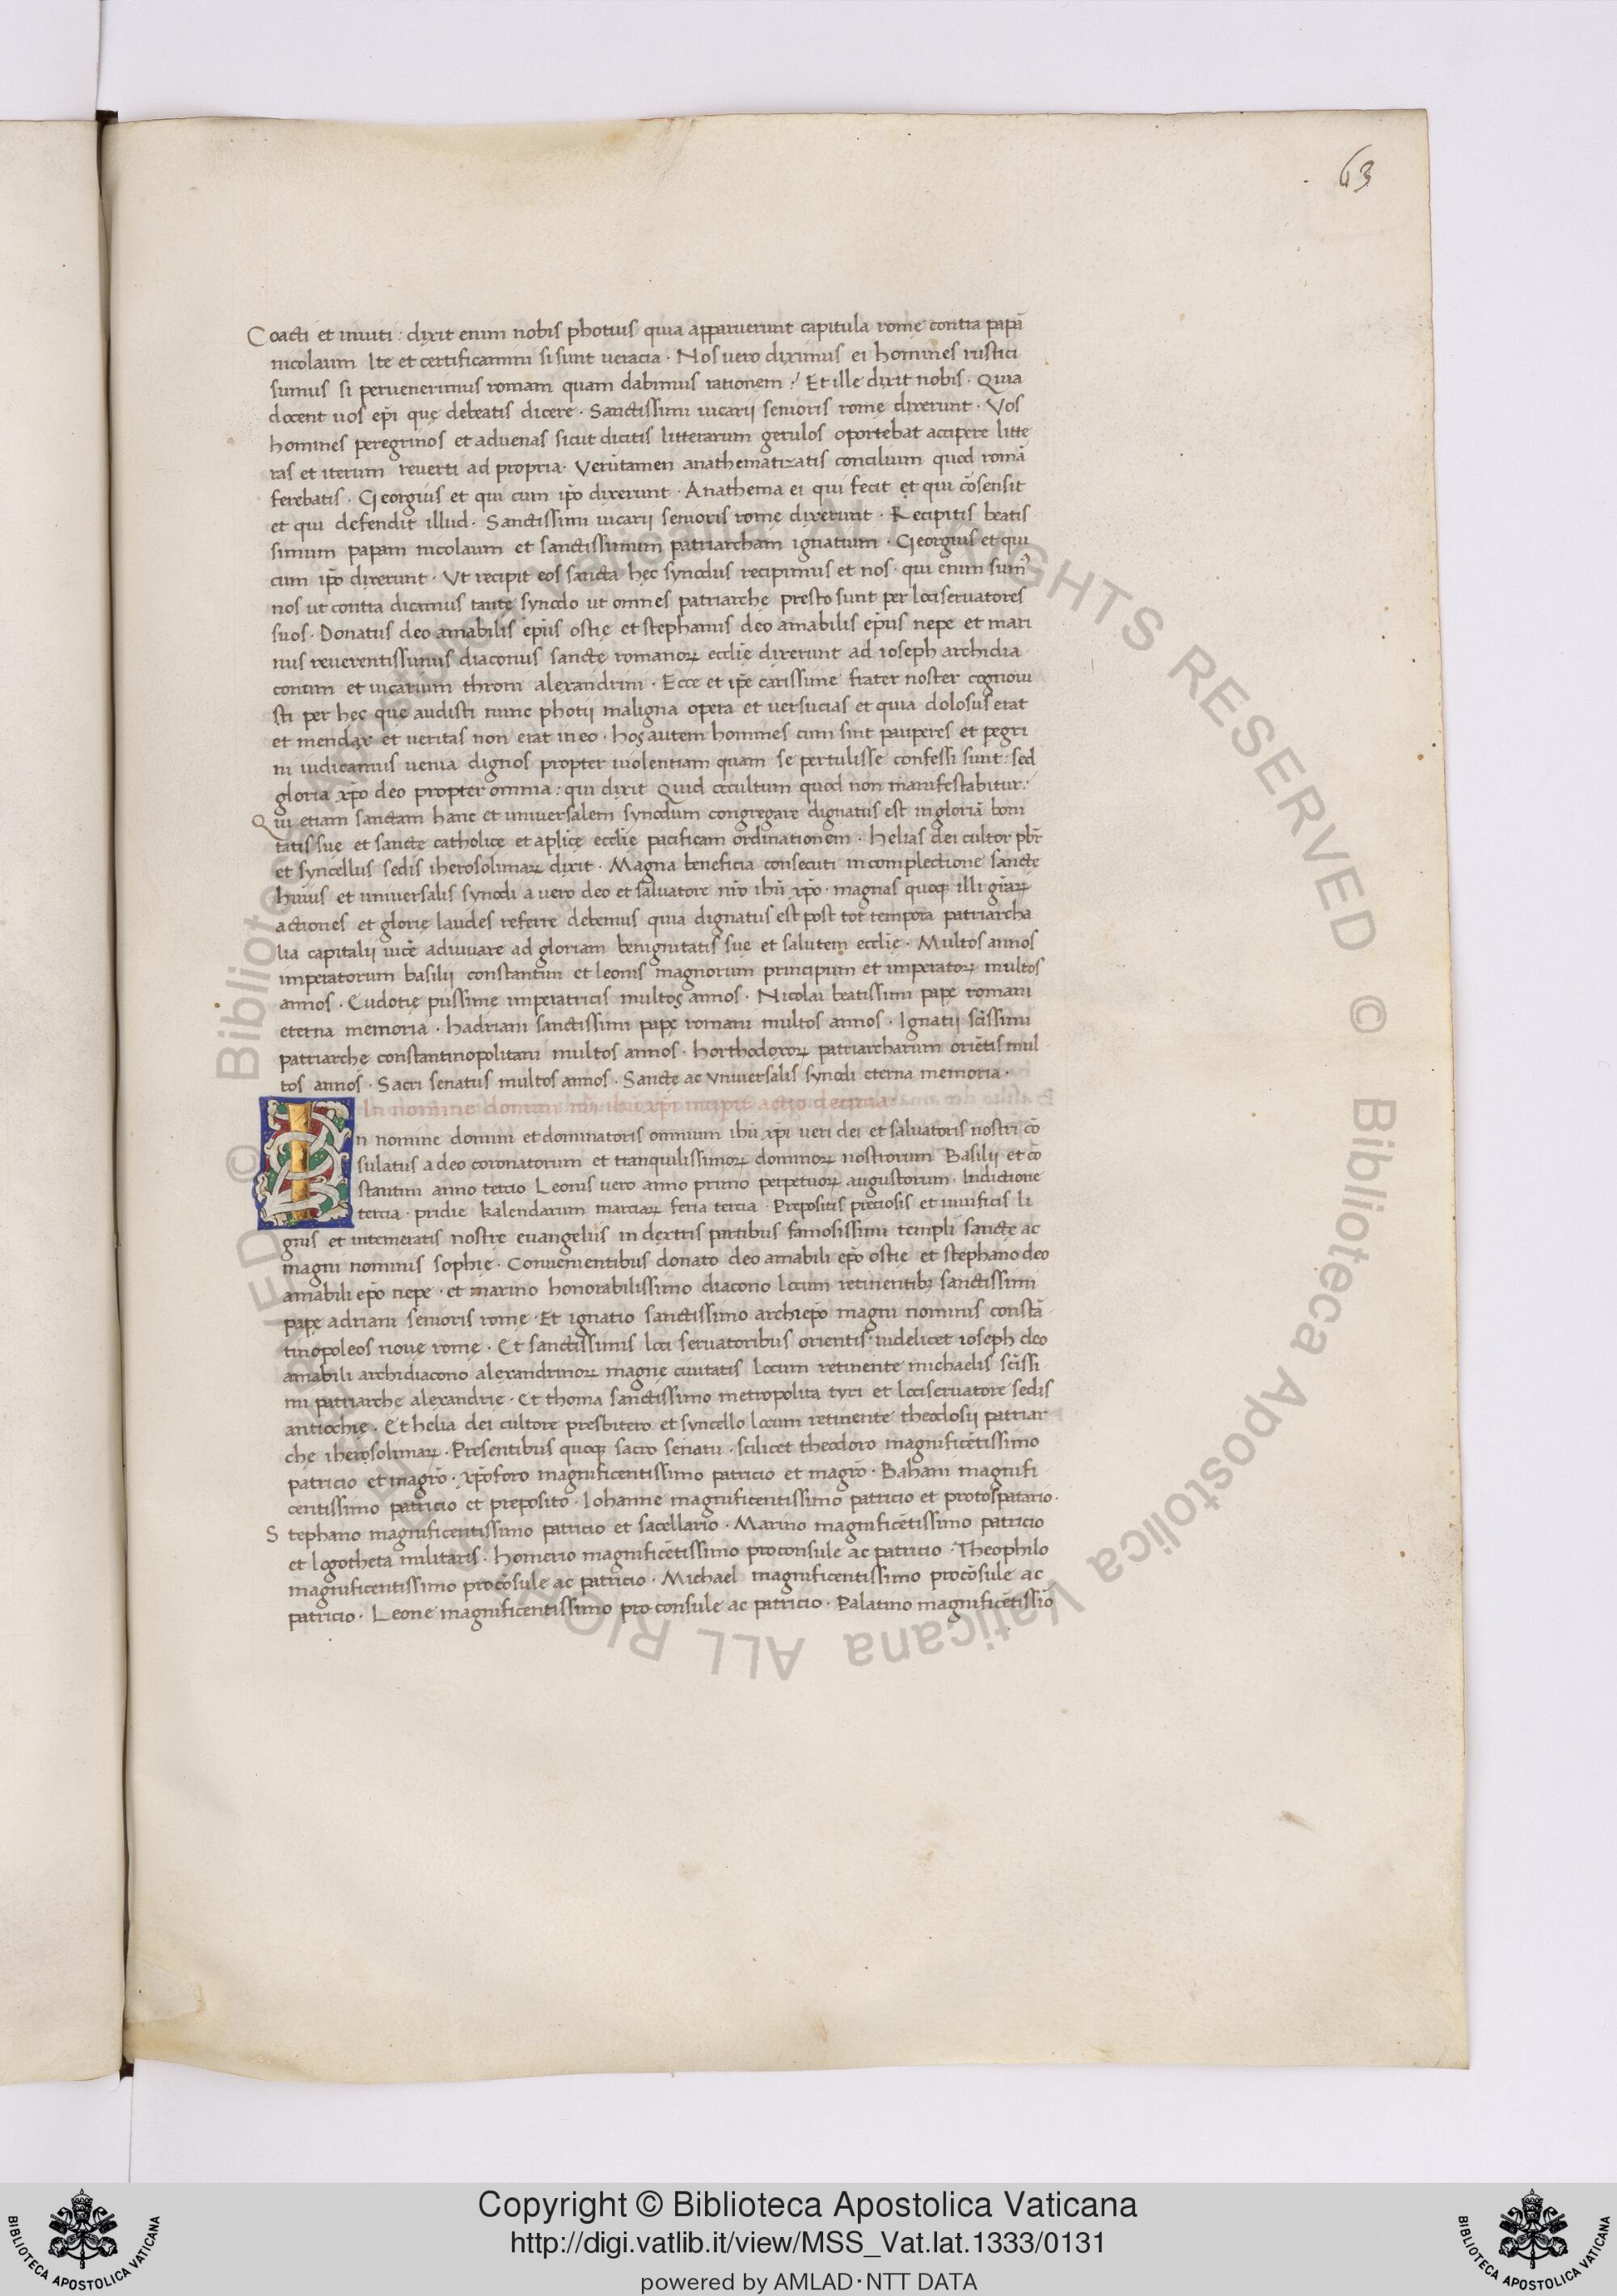 63
Coacti et inuiti : dixit enim nobis photius quia apparuerunt capitula rome contra papā
nicolaum Ite et certificamini si sunt ueracia · Nos uero diximus ei homines rustici
sumus si peruenerimus romam quam dabimus rationem :/ Et ille dixit nobis · Quia
docent uos ep̄i quę debeatis dicere · Sanctissimi uicarii senioris romę dixerunt · Vos
homines peregrinos et aduenas sicut dicitis litterarum gerulos oportebat accipere litte
ras et iterum reuerti ad propria · Verūtamen anathematizatis concilium quod romā
ferebatis · Georgius et qui cum ip̄o dixerunt · Anathema ei qui fecit et qui cōsensit
et qui defendit illud · Sanctissimi uicarii senioris rome dixerunt · Recipitis beatis
simum papam nicolaum et sanctissimum patriarcham ignatium · Georgius et qui
cum ip̄o dixerunt · Vt recipit eos sancta hęc synodus recipimus et nos · qui enim sum᷒
nos ut contra dicamus tantę synodo ut omnes patriarchę presto sunt per lociseruatores
suos · Donatus deo amabilis ep̄us ostię et stephanus deo amabilis ep̄us nepe et mari
nus reuerentissimus diaconus sanctę romanoꝝ ecclīę dixerunt ad ioseph archidia
conum et uicarium throni alexandrini · Ecce et ip̄e carissime frater noster cognoui
sti per hęc quę audisti nunc photii maligna opera et uersucias et quia dolosus erat
et mendax et ueritas non erat in eo · hos autem homines cum sint pauperes et pegri
ni iudicamus uenia dignos propter uiolentiam quam se pertulisse confessi sunt : sed
gloria xp̄o deo propter omnia : qui dixit Quid occultum quod non manifestabitur :/
Qui etiam sanctam hanc et uniuersalem synodum congregare dignatus est in gloriā boni
tatis sue et sancte catholicę et aplicę ecclīe pacificam ordinationem · helias dei cultor pb̄r
et syncellus sedis iherosolimaꝝ dixit · Magna beneficia consecuti in complectione sanctę
huius et uniuersalis synodi a uero deo et saluatore nr̄o ihū xp̄o · magnas quoqꝫ illi gr̄aꝝ
actiones et glorię laudes referre debemus quia dignatus est post tot tempora patriarcha
lia capitalii uicē adiuuare ad gloriam benignitatis sue et salutem ecclīe · Multos annos
imperatorum basilii constantini et leonis magnorum principum et imperatoꝝ multos
annos · Eudotię piissimę imperatricis multos annos · Nicolai beatissimi papę romani
eterna memoria · hadriani sanctissimi papę romani multos annos · Ignatii sc̄issimi
patriarchę constantinopolitani multos annos · horthodoxoꝝ patriarcharum oriētis mul
tos annos · Sacri senatus multos annos · Sanctę ac vniuersalis synodi eterna memoria ·
In nomine domini nr̄i ihū xp̄i incipit actio decima ·
In nomine domini et dominatoris omnium ihū xp̄i ueri dei et saluatoris nostri cō
sulatus a deo coronatorum et tranquilissimoꝝ dominoꝝ nostrorum Basilii et cō
stantini anno tercio Leonis uero anno primo perpetuoꝝ augustorum · Indictione
tercia · pridie kalendarum marciaꝝ feria tercia · Prepositis preciosis et uiuificis li
gnis et intemeratis nostre euangeliis in dextris partibus famosissimi templi sanctę ac
magni nominis sophię · Conuenientibus donato deo amabili ep̄o ostie et stephano deo
amabili ep̄o nepe · et marino honorabilissimo diacono locum retinentibꝫ sanctissimi
papę adriani senioris romę · Et ignatio sanctissimo archiep̄o magni nominis constā
tinopoleos nouę romę · Et sanctissimis loci seruatoribus orientis · uidelicet ioseph deo
amabili archidiacono alexandrinoꝝ magnę ciuitatis locum retinente michaelis sc̄issi
mi patriarchę alexandrię · Et thoma sanctissimo metropolita tyri et lociseruatore sedis
antiochię · Et helia dei cultore presbitero et syncello locum retinente theodosii patriar
chę iherosolimaꝝ · Presentibus quoqꝫ sacro senatu · scilicet theodoro magnificētissimo
patricio et magr̄o · xp̄oforo magnificentissimo patricio et magr̄o · Bahani magnifi
centissimo patricio et preposito · Iohanne magnificentissimo patricio et protospatario ·
Stephano magnificentissimo patricio et sacellario · Marino magnificētissimo patricio
et logotheta militaris · homerio magnificētissimo proconsule ac patricio · Theophilo
magnificentissimo procōsule ac patricio · Michael magnificentissimo procōsule ac
patricio · Leone magnificentissimo pro consule ac patricio · Palatino magnificētissīo
Copyright © Biblioteca Apostolica Vaticana
http://digi.vatlib.it/view/MSS_Vat.lat.1333/0131
powered by AMLAD·NTT DATA
BIBLIOTECA APOSTOLICA VATICANA
BIBLIOTECA APOSTOLICA VATICANA
© Biblioteca Apostolica Vaticana ALL RIGHTS RESERVED
© Biblioteca Apostolica Vaticana ALL RIGHTS RESERVED